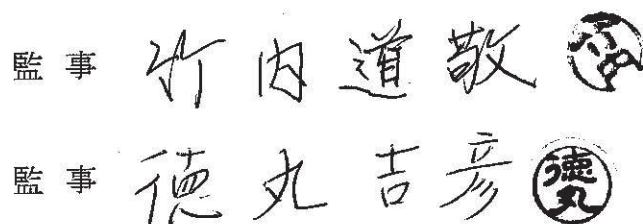 監事 竹内道敬
監事 徳丸吉彦 徳丸